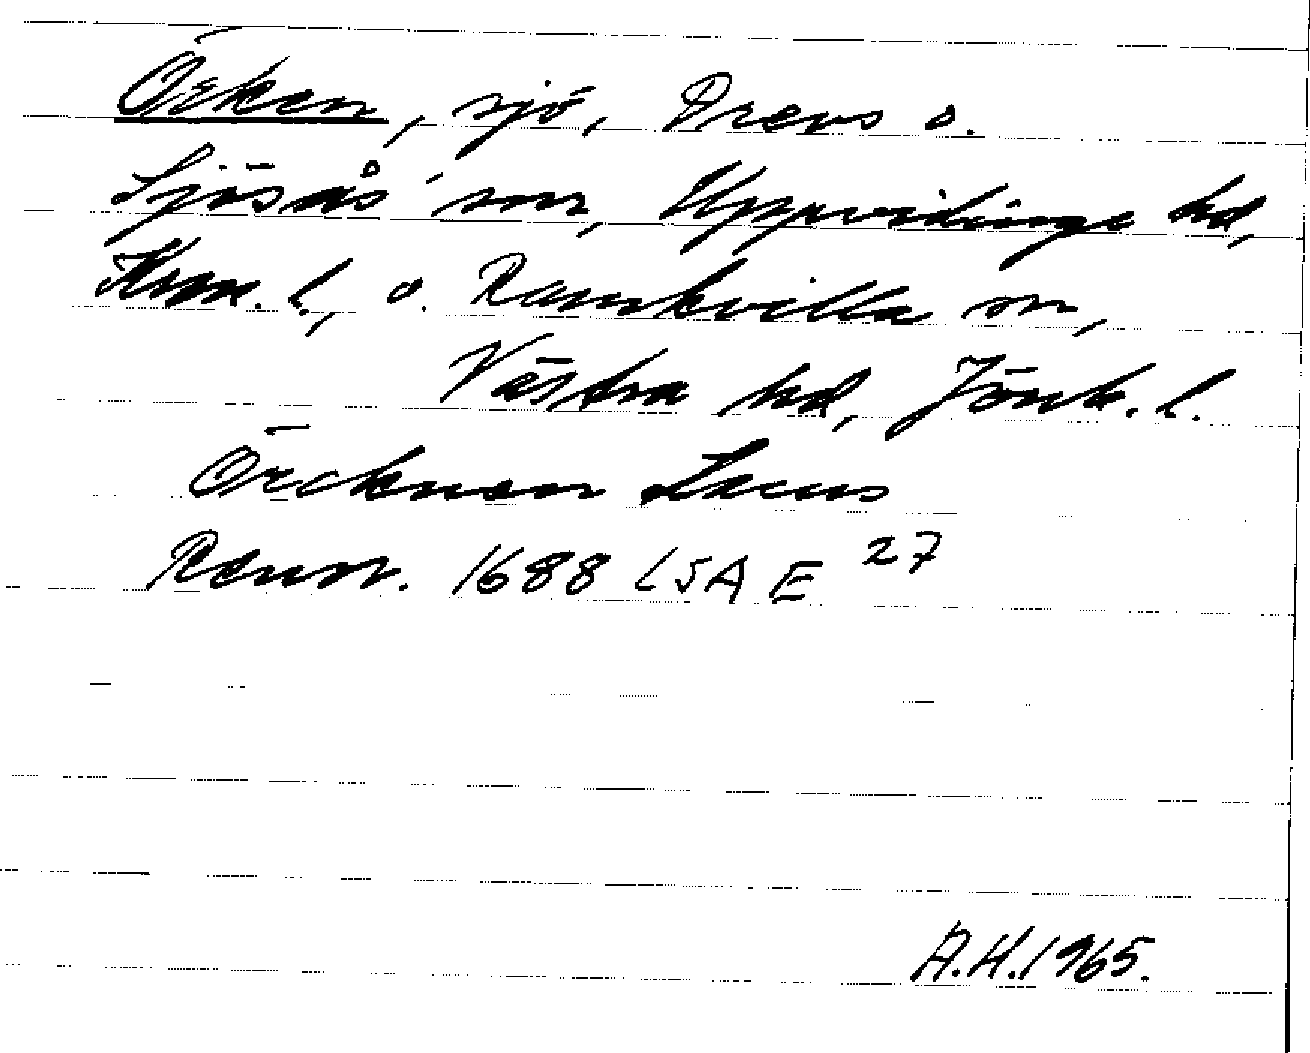 Örken, sjö, Drevs o.
Sjösås snr, Uppvidinge hd,
Kron. l., o. Ramkvilla sn,
Västra hd, Jönk. l.
Örckenen Lacus
Rannr. 1688 LSA E 27
A.H. 1965.